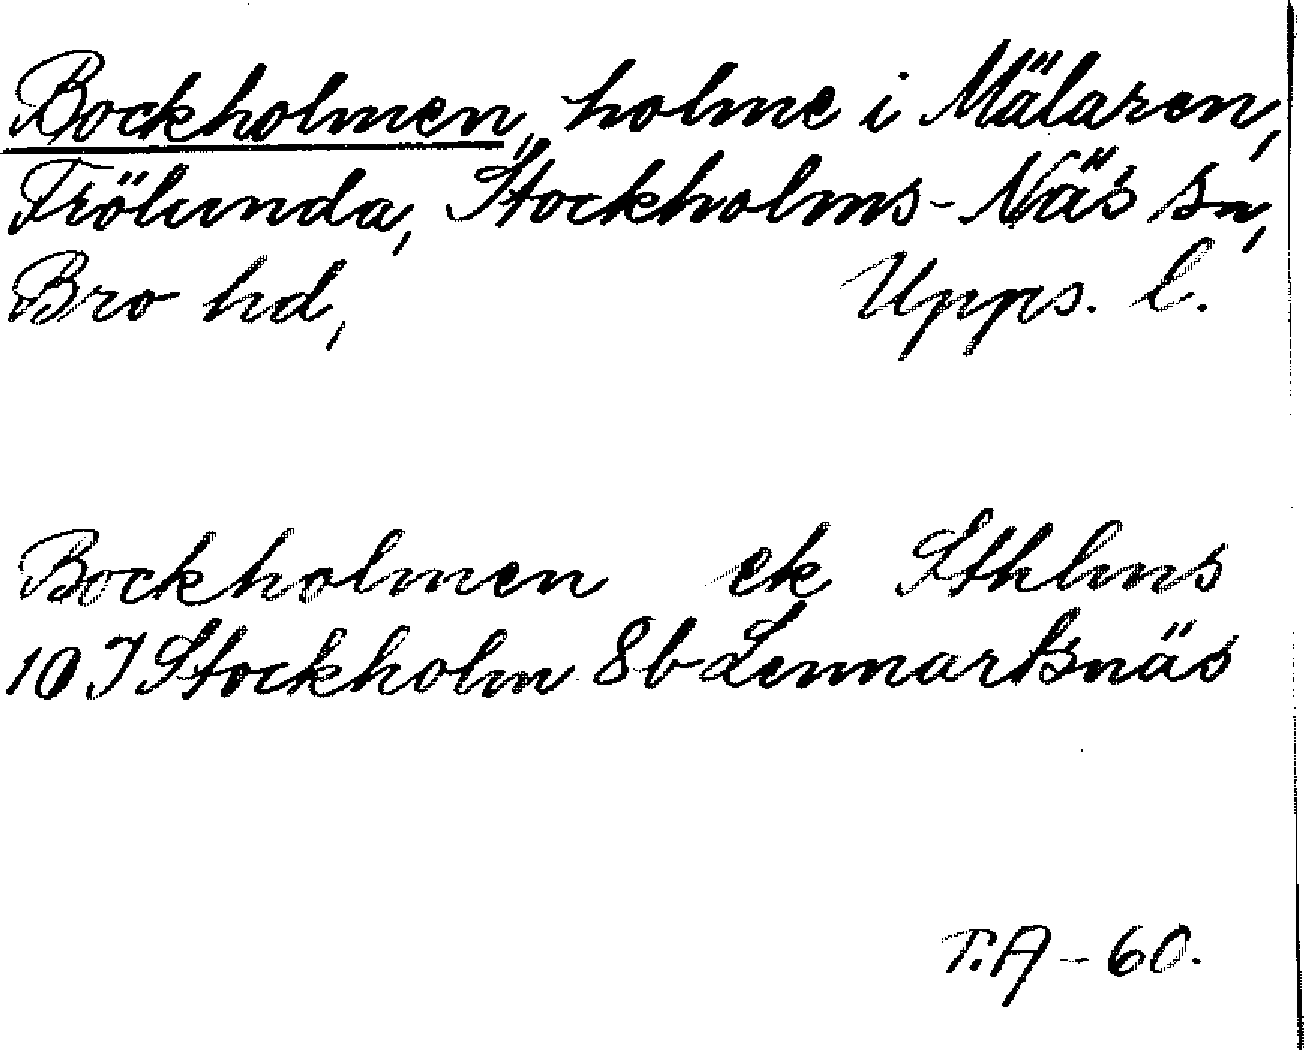 Bockholmen, holme i Mälaren,
Frölunda, Stockholms-Näs sn,
Bro hd, Upps. l.
Bockholmen ek Sthlms
10 I Stockholm 8b Lennartsnäs
T.A - 60.